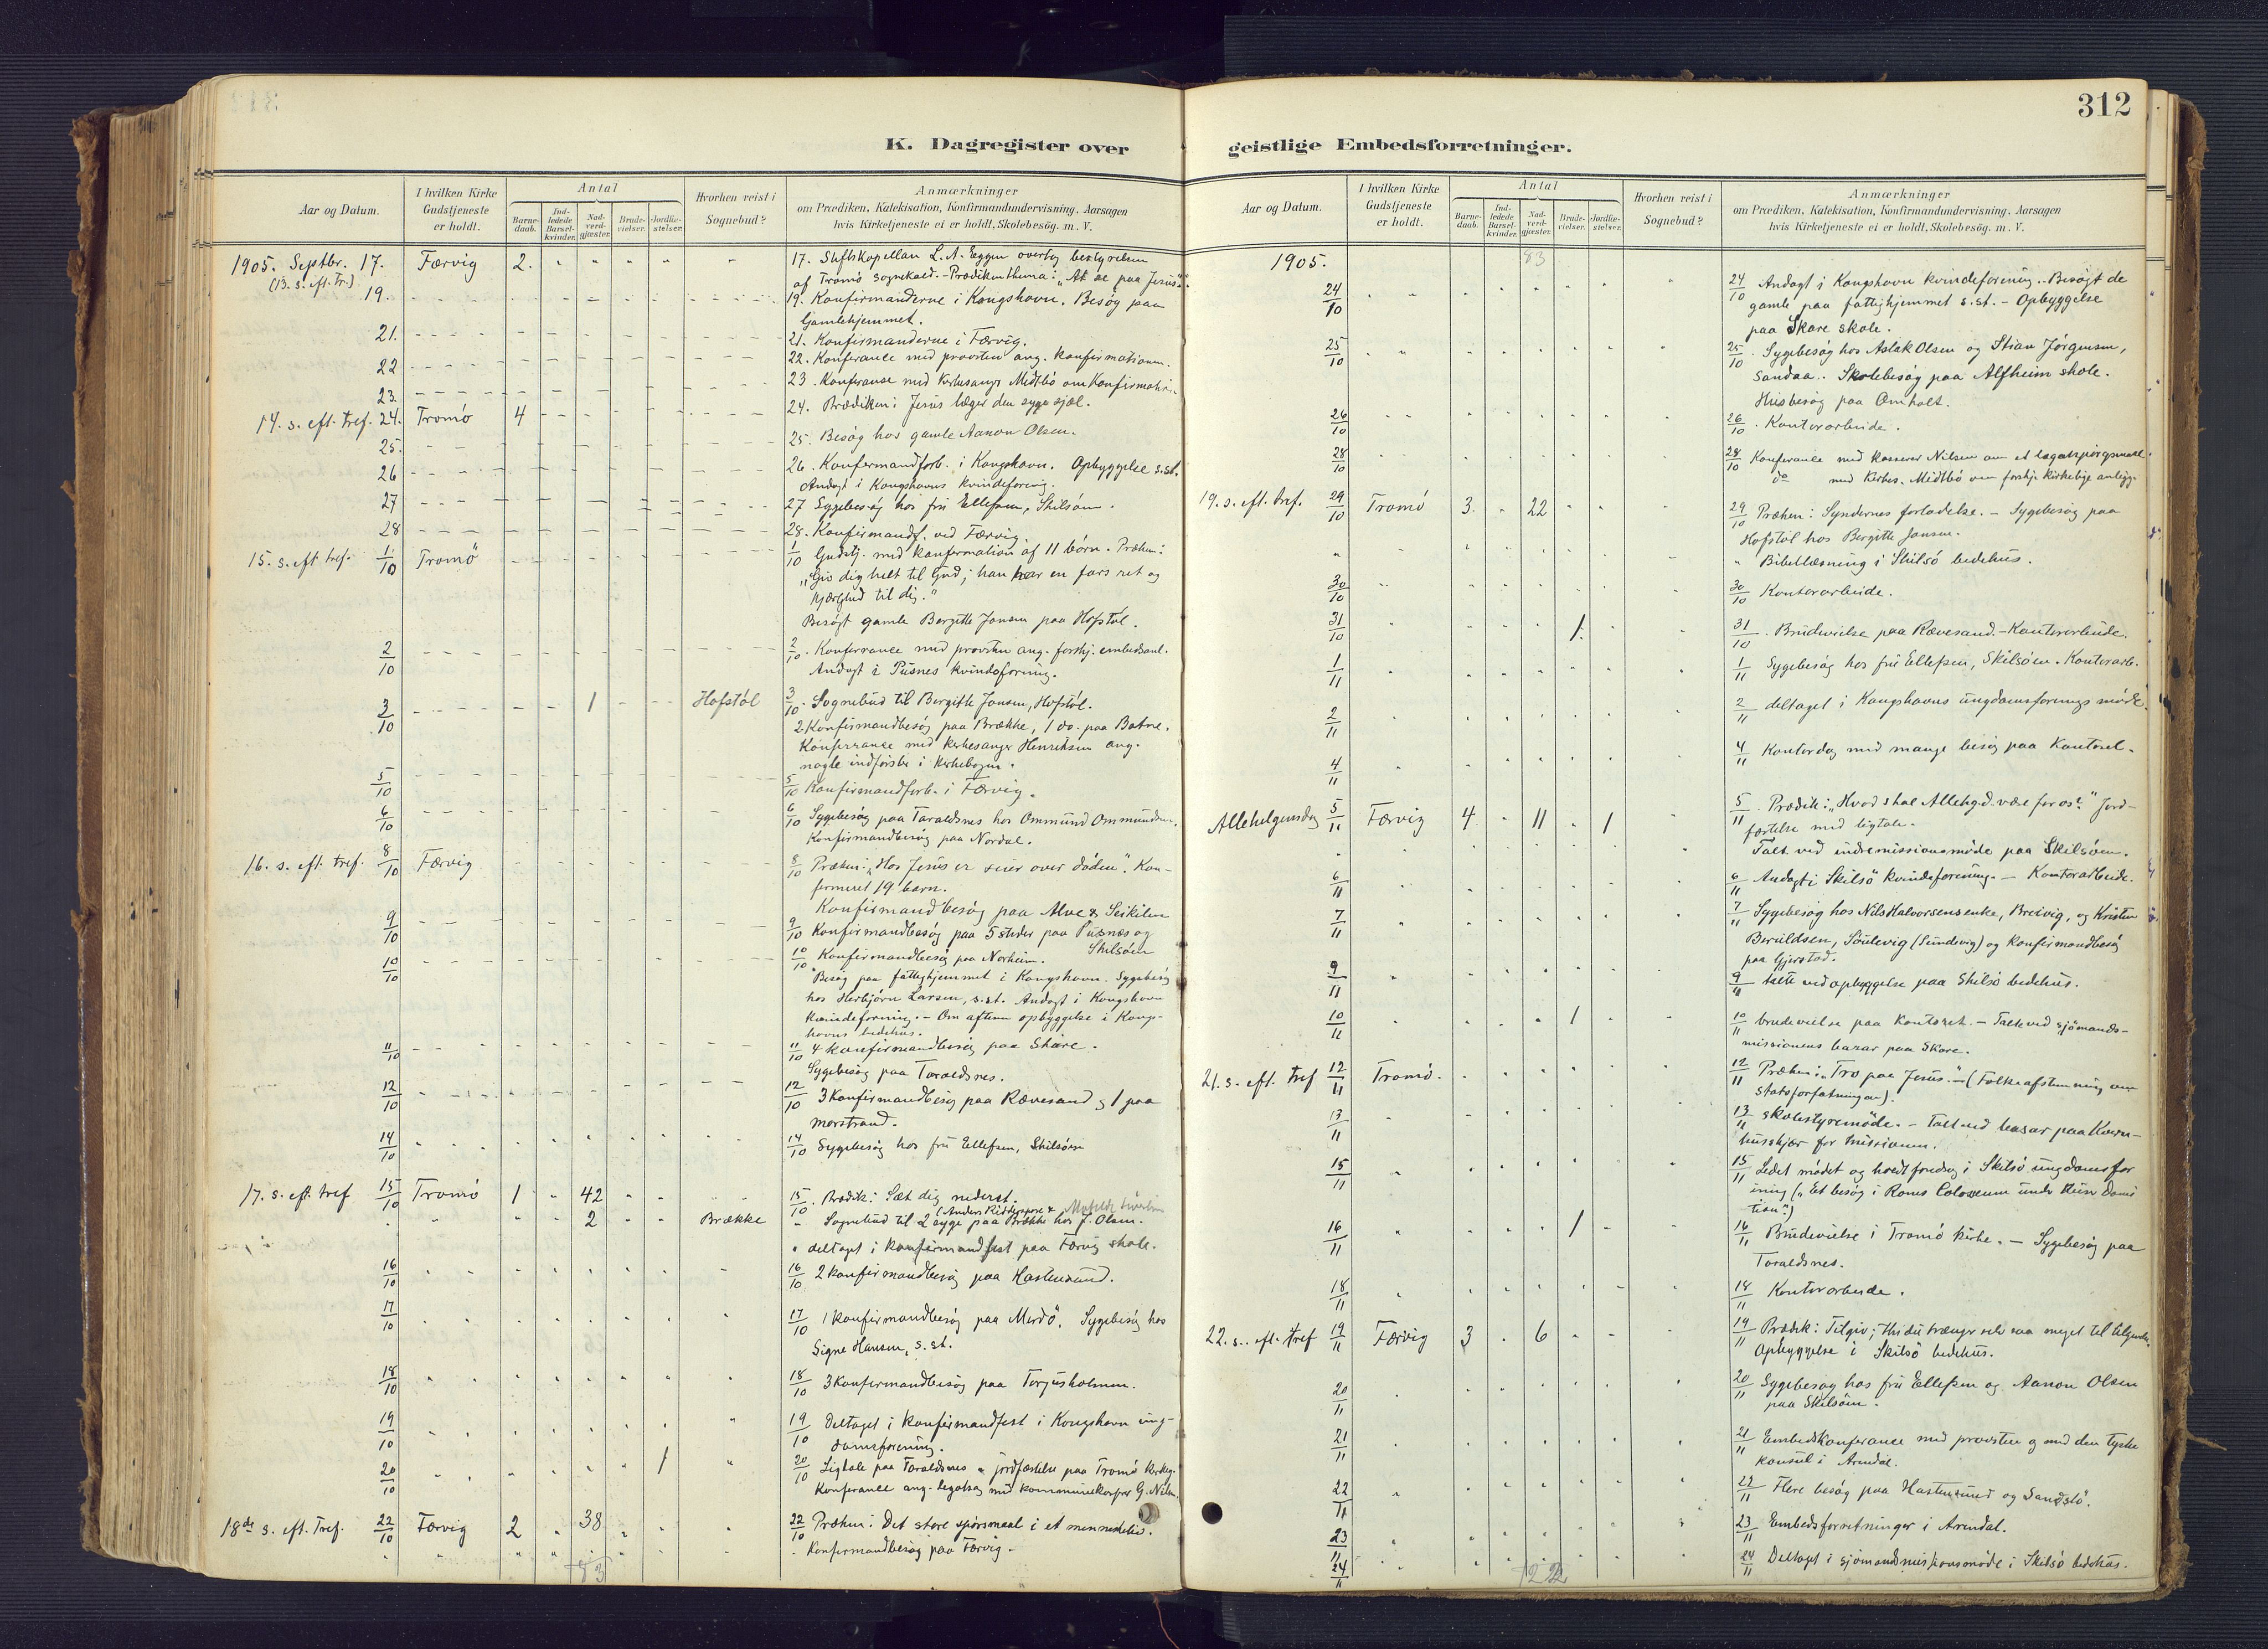 312
K. Dagregister over
Aar og Datum.
I hvilken Kirke Gudstjeneste er holdt.
Antal
Barne-daab.
Ind-ledede Barsel-kvinder.
Nad-verd-gjæster.
Brude-vielser.
Jordfæ-stelser.
Hvorhen reist i Sognebud?
Anmærkninger
om Prædiken, Katekisation, Konfirmandundervisning, Aarsagen
hvis Kirketjeneste ei er holdt, Skolebesög. m. V.
1905. Septbr. 17. Færvig 2. 17. Stiftskapellan L. A. Eggen overtog bestyrelsen
(13. s. eft. Tr.) af Tromö sognekald. - Prædikenthema: "At se paa Jesus".
19. 19. Konfirmanderne i Kongshavn. Besög paa
Gamlehjemmet.
21. 21. Konfirmanderne i Færvig.
22 22. Konferance med provsten ang. konfirmationen.
23. 23. Konferanse med kirkesanger Midtbö om Konfirmation
14. s. eft. tref. 24. Tromö 4 24. Prædiken: Jesus læger den syge sjæl.
25. 25. Besög hos gamle Aanon Olsen.
26 26. Konfermandforb. i Kongshavn. Opbyggelse s.st.
Andagt i Kongshavns kvindeforenig.
27 27 Sygebesög hos fru Ellefsen, Skilsöen.
28 28. Konfirmandf. ved Færvig.
15. s. eft. tref. 1/10 Tromö 1/10 Gudstj. med konfermation af 11 börn. Præken:
"Giv dig helt til Gud; han har en fars ret og
kjærlighed til dig."
Besögt gamle Bergitte Jonsen paa Hofstöl.
2/10 2/10. Konferrance med provsten ang. forskj. embedsanl.
Andagt i Pusnes kvindeforning.
3/10 1 Hofstöl 3/10. Sognebud til Bergitte Jonsen, Hofstöl.
2 Konfirmandbesög paa Brække, 1 do. paa Botne.
Konferrance med kirkesanger Henriksen ang.
nogle indförsler i kirkebogen.
5/10 5/10 Konfirmandforb. i Færvig.
6/10 6/10 Sygebesög paa Taraldsnes hos Ommund Ommundsen.
Konfirmandbesög paa Nordal.
16. s. eft. tref. 8/10 Færvig 8/10 Præken: "Hos Jesus er seier over döden". Kon-
firmeret 19 barn.
Konfirmandbesög paa Alve &
9/10 9/10 Konfirmandbesög paa 5 steder paa Pusnes og
Skilsöen
10/10 10/10 Konfirmandbesög paa Norheim.
Besög paa fattighjemmet i Kongshavn. Sygebesög
hos Herbjörn Larsen, s.st. Andagt i Kongshavn
kvindeforning. - Om aftenen opbyggelse i Kongs-
havns bedehus.
11/10 11/10 4 konfirmandbesög paa Skare.
Sygebesög paa Taraldsnes.
12/10 12/10 3 Konfirmandbesög paa Rævesand og 1 paa
merstrand.
14/10 14/10 Sygebesög hos fru Ellefsen, Skilsöen
17. s. eft. tref 15/10 Tromö 1 42 15/10. Prædik: Sæt dig nederst.
2 Brække " Sognebud til 2 syge paa Brække hos J. Olsen.
" deltaget i konfirmandfest paa Færvig skole.
16/10 16/10 2 konfirmandbesög paa Hastensund.
17/10 17/10 1 konfirmandbesög paa Merdö. Sygebesög hos
Signe Hansen, s.st.
18/10 18/10 3 Konfirmandbesög paa Torjusholmen.
19/10 19/10 Deltaget i konfirmandfest i Kongshavn ung-
domsforening.
20/10 1 20/10 Ligtale paa Taraldsnes & jordfæstelse paa Tromö kirkeg.
Konferance ang. legatsag med kommunekasserer G. Nilsen.
18de s. eft. Tref. 22/10 Færvig 2 38 22/10 Præken: Det store spörsmaal i et menneskeliv.
Konfirmandbesög paa Færvig.
83
geistlige Embedsforretninger.
Aar og Datum.
I hvilken Kirke Gudstjeneste er holdt.
Antal
Barne-daab.
Ind-ledede Barsel-kvinder.
Nad-verd-gjæster.
Brude-vielser.
Jordfæ-stelser.
Hvorhen reist i Sognebud?
Anmærkninger
om Prædiken, Katekisation, Konfirmandundervisning, Aarsagen
hvis Kirketjeneste ei er holdt, Skolebesög. m. V.
1905. 83
24/10 24/10 Andagt i Kongshavn kvindeforening. - Besögt de
gamle paa fattighjemmet s.st. - Opbyggelse
paa Skare skole.
25/10 25/10. Sygebesög hos Aslak Olsen og Stian Jörgensen,
Sandaa. Skolebesög paa Alfheim skole.
Husbesög paa Omholt.
26/10 26/10. Kontorarbeide.
28/10 28/10 Konferance med kasserer Nilsen om et legatspörgsmaal
do med Kirkes. Midtbö om forskj. kirkelige anligg.
19. s. eft. tref. 29/10 Tromö 3. 22 29/10 Præken: Syndernes forladelse. - Sygebesög paa
Hofstöl hos Bergitte Jonsen.
" Bibellæsning i Skilsö bedehus.
30/10 30/10 Kontorarbeide.
31/10 1. 31/10. Brudevielse paa Rævesand. - Kontorarbeide.
1/11 1/11 Sygebesög hos fru Ellefsen, Skilsöen. Kontorarb.
2/11 2/11 deltaget i Kongshavns ungdomsforenings möde.
4/11 4/11 Kontordag med mange besög paa kontoret.
Allehelgensdag 5/11 Færvig 4 11 1 5/11. Prædik: "Hvad skal Allehg.d. være for os?" Jord-
fæstelse med ligtale.
Talt ved indremissionsmöde paa Skilsöen.
6/11 6/11 Andagt i Skilsö kvindeforening. - Kontorarbeide.
7/11 7/11 Sygebesög hos Nils Halvorsens enke, Breivig, og Kristen
Beruldsen, Söulevig (Sundevig) og konfirmandbesög
paa Gjerstad.
9/11 9/11 talte ved opbyggelse paa Skilsö bedehus.
10/11 1 10/11 brudevielse paa Kontoret. - Talte ved sjömands-
missionens bazar paa Skare.
21. s. eft. tref 12/11 Tromö. 12/11 Præken: "Tro paa Jesus." - (Folkeafstemning om
statsforfatningen).
13/11 13/11 skolestyremöde. - Talt ved basar paa Kvern-
huskjær for missionen.
15/11 15/11 Ledet mödet og holdt foredrag i Skilsö ungdomsfor
ening ("Et besög i Roms Colosseum under Keiser Domi
tian".)
16/11 1 16/11 Brudevielse i Tromö kirke. - Sygebesög paa
Taraldsnes.
18/11 18/11 Kontorarbeide.
22. s. eft. tref 19/11 Færvig 3 6 19/11 Prædik: Tilgiv; thi du trænger selv saa meget til tilgivelse.
Opbyggelse i Skilsö bedehus.
20/11 20/11 Sygebesög hos fru Ellefsen og Aanon Olsen
paa Skilsöen.
21/11 21/11 Embedskonferance med provsten og med den tyske
konsul i Arendal.
22/11 22/11 Flere besög paa Hastensund og Sandstö.
23/11 23/11 Embedsforretninger i Arendal.
24/11 24/11 Deltaget i sjömandsmissionsmöde i Skilsö bedehus.
122